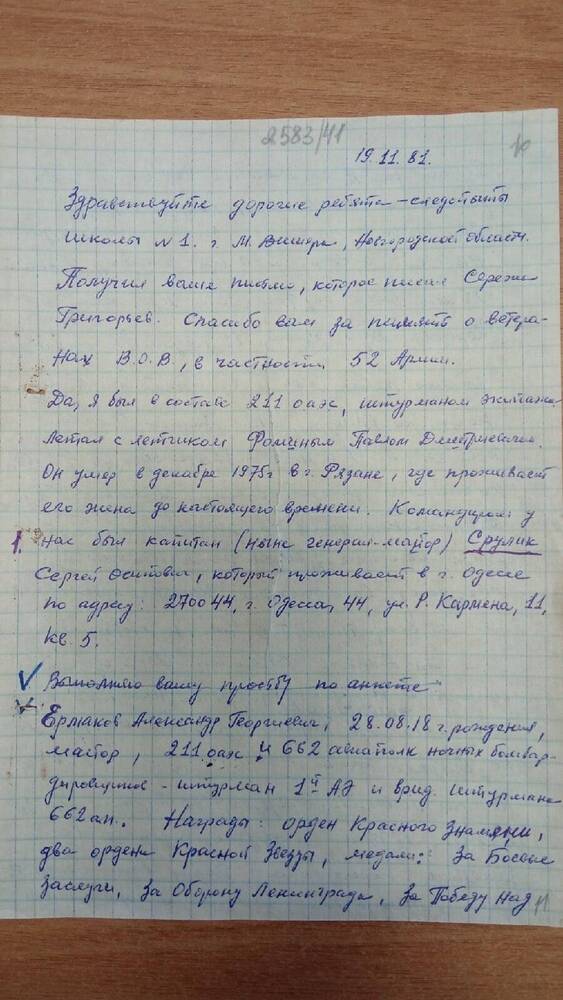 2583/41
19.11.81.
Здравствуйте дорогие ребята - следопыты
школы №1. г М. Вишера, Новгородской области.
Получил ваше письмо, которое писал Сережа
Григорьев. Спасибо вам за память о ветера-
нах В.О.В, в частности 52 Армии.
Да, я был в составе 211 оаэ, штурманом экипажа
летал с летчиком Фоминым Павлом Дмитриевичем.
Он умер в декабре 1975г в г. Рязане, где проживает
его жена до настоящего времени. Командиром у
1. нас был капитан (ныне генерал-майор) Срулик
Сергей Осипович, который проживает в г. Одессе
по адресу: 270044, г. Одесса, 44, ул. Р. Кармена, 11,
кв. 5.
Выполняю вашу просьбу по анкете
Ермаков Александр Георгиевич, 28.08.18 г. рождения,
майор, 211 оаэ и 662 авиаполк ночных бомбар-
дировщиков - штурман 1й АЭ и врид. штурмана
662 ап. Награды: орден Красного Знамени,
два ордена Красной Звезды, медали: За Боевые
Заслуги, За Оборону Ленинграда, За Победу над